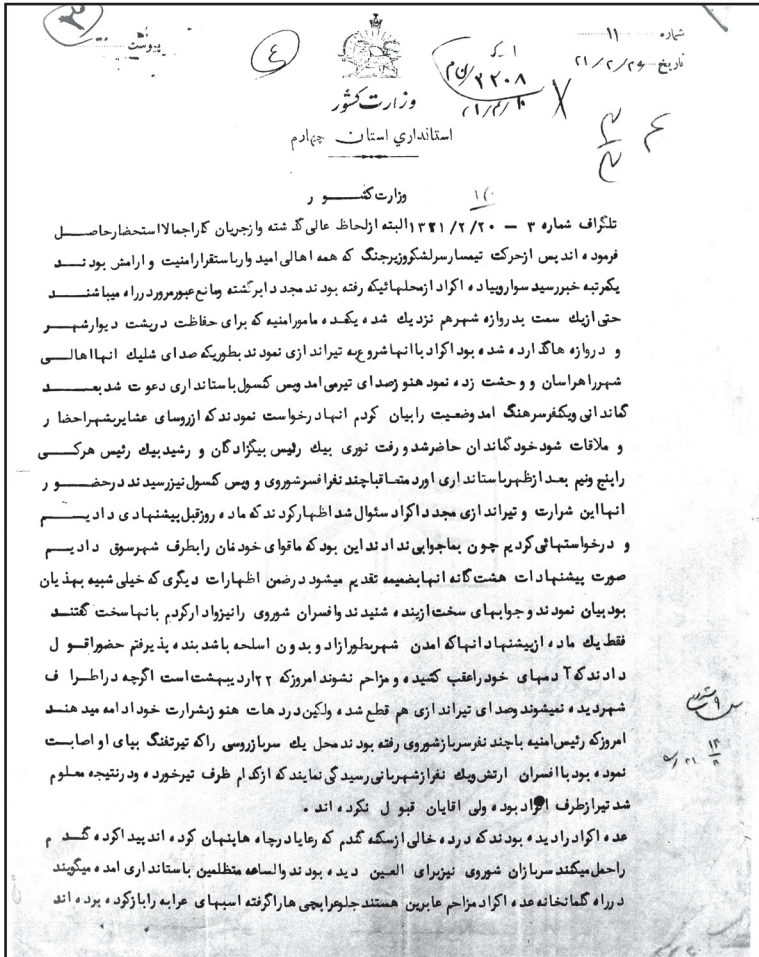 شماره ۱۱
تاریخ ۲۱/۲/۲۴
پیوست
۴
۲۲۰۸
وزارت کشور
استانداری استان چهارم
وزارت کشور
تلگراف شماره ۳ – ۱۳۲۱/۲/۲۰ البته ازلحاظ عالی گذشته وازجریان کاراجمالا استحضارحاصل
فرموده اند پس ازحرکت تیمسارسرلشکروزیرجنگ که همه اهالی امید وارباستقرارامنیت و ارامش بودند
یکمرتبه خبررسید سواروپیاده اکراد ازمحلهائیکه رفته بودند مجددا برگشته ومانع عبورمروردرراه میباشند
حتی ازیك سمت بدروازه شهرهم نزدیك شده یکعده مامورامنیه که برای حفاظت درپشت دیوارشهر
و دروازه هاگذارده شده بود اکراد باانهاشروع به تیراندازی نمودند بطوریکه صدای شلیك انهااهالی
شهرراهراسان و وحشت زده نمود هنوزصدای تیرمی امد ویس کنسول باستانداری دعوت شد بعد
گماندانی ویکنفرسرهنگ امد وضعیت را بیان کردم انها درخواست نمودند که ازروسای عشایربشهراحضار
و ملاقات شود خود گماندان حاضرشد و رفت نوری بیك رئیس بیگزادگان و رشید بیك رئیس هرکی
راپنج ونیم بعد ازظهرباستانداری اورد متعاقبا چند نفرافسرشوروی و ویس کنسول نیزرسیدند درحضور
انهااین شرارت و تیراندازی مجدد اکراد سئوال شد اظهارکردند که ماده روزقبل پیشنهادی دادیم
و درخواستهائی کردیم چون بماجوابی ندادند این بود که ماقوای خودمان رابطرف شهرسوق دادیم
صورت پیشنهادات هشت گانه انهابضمیمه تقدیم میشود درضمن اظهارات دیگری که خیلی شبیه بهذیان
بود بیان نمودند وجوابهای سخت ازبنده شنیدند وافسران شوروی رانیزوادارکردم بانهاسخت گفتند
فقط یك ماده ازپیشنهاد انهاکه امدن شهربطورازاد و بدون اسلحه باشد بنده پذیرفتم حضورا قول
دادند که آدمهای خود راعقب کشیده و مزاحم نشوند امروزکه ۲۲ اردیبهشت است اگرچه دراطراف
شهردیده نمیشوند وصدای تیراندازی هم قطع شده ولکین دردهات هنوزبشرارت خود ادامه میدهند
امروزکه رئیس امنیه باچند نفرسربازشوروی رفته بودند محل یك سربازروسی راکه تیرتفنگ بپای او اصابت
نموده بود باافسران ارتش ویك نفرازشهربانی رسیدگی نمایند که ازکدام طرف تیرخورده ودرنتیجه معلوم
شد تیرازطرف اکراد بوده ولی اقایان قبول نکرده اند .
عده اکراد رادیده بودند که درده خالی ازسکنه گندم که رعایادرچاه هاپنهان کرده اند پیداکرده گندم
راحمل میکنند سربازان شوروی نیزبرای العین دیده بودند والساعه متظلمین باستانداری امده میگویند
درراه گلمانخانه عده اکراد مزاحم عابرین هستند جلوعرابچی هاراگرفته اسبهای عرابه رابازکرده برده اند